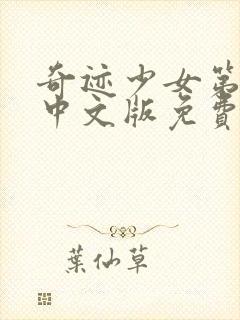 奇迹少女第
中文版免費
葉仙草